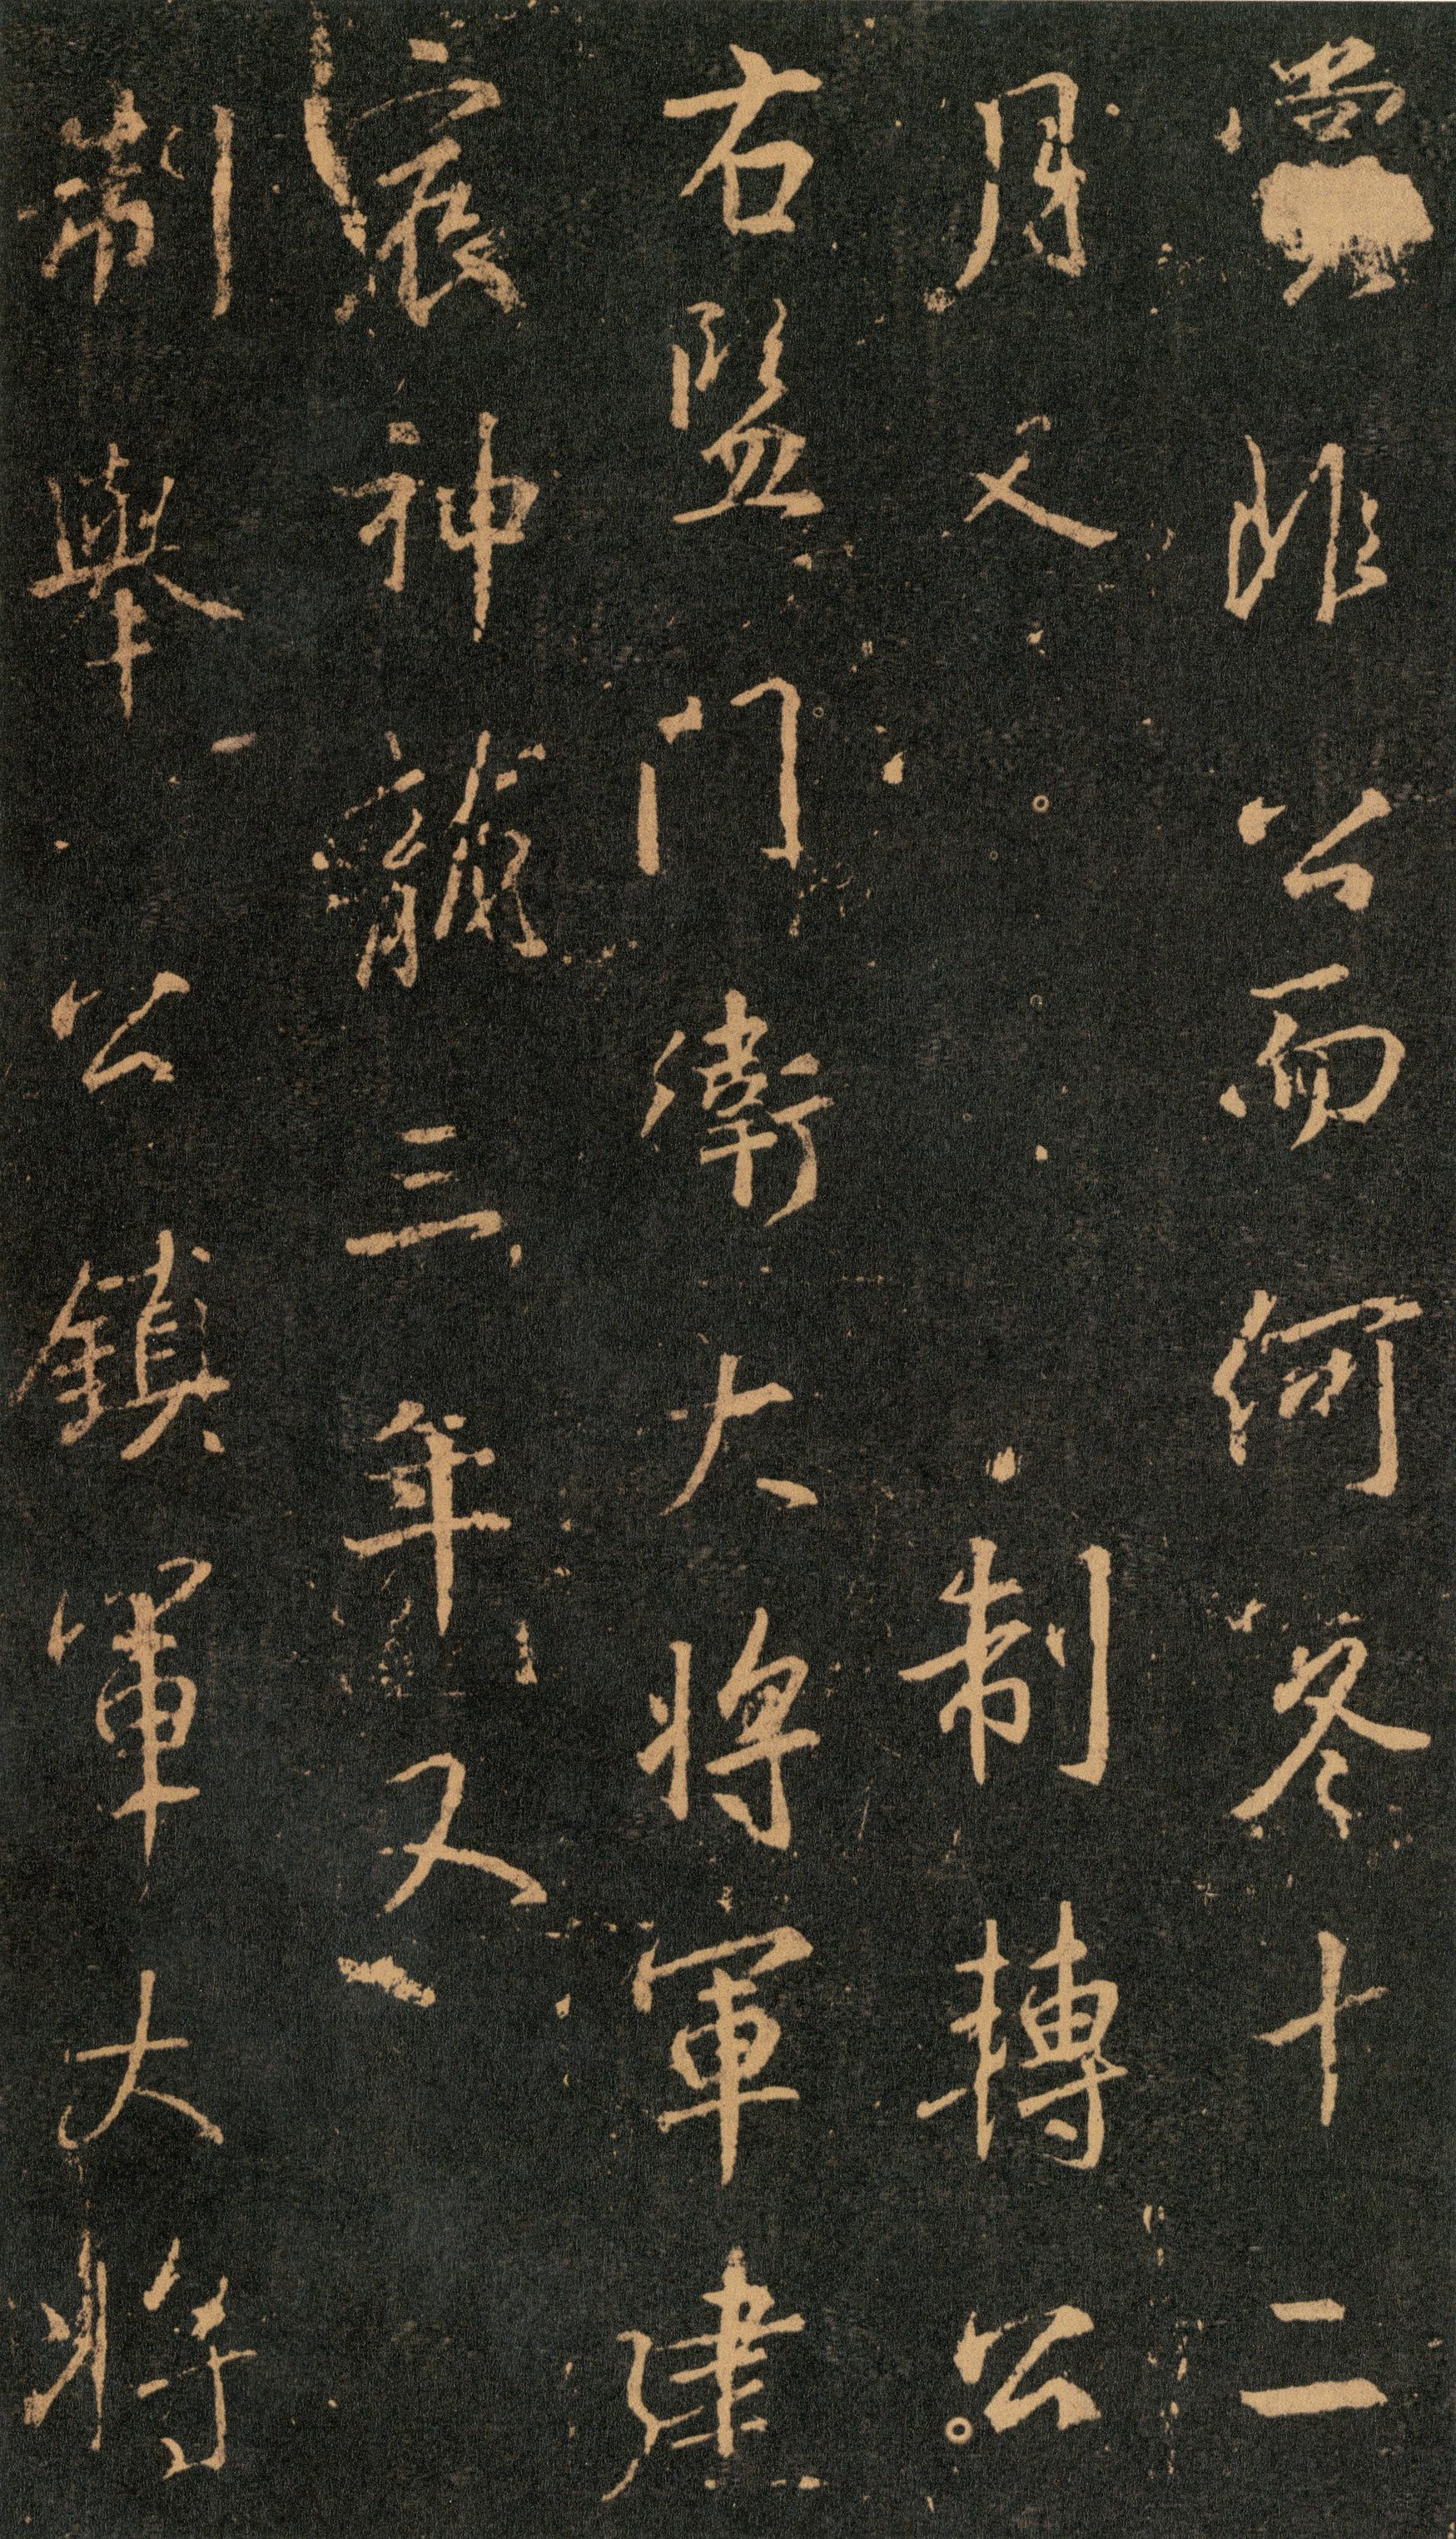 賞非公而何冬十二
月又制摶公
右監門衛大將軍建
扆神龍三年又
制舉公鎮軍大將